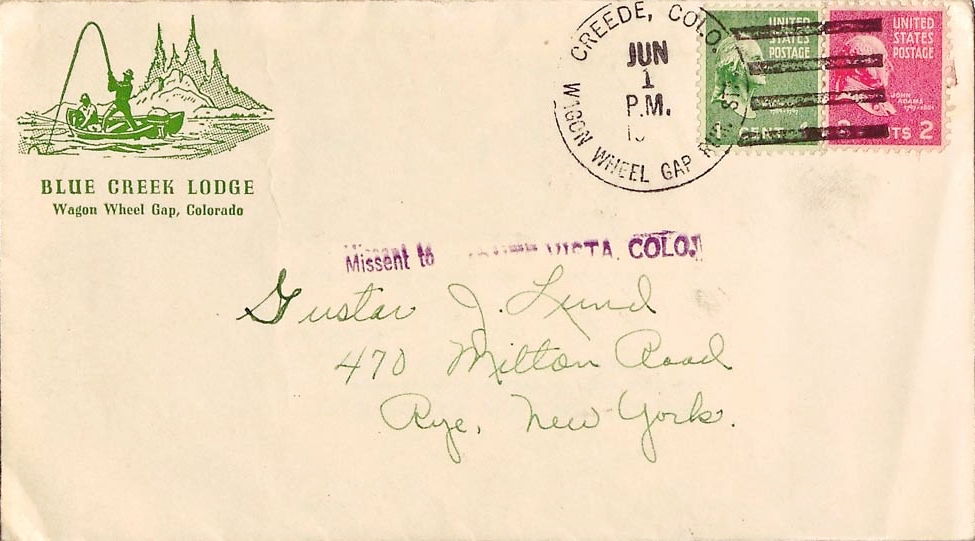 BLUE CREEK LODGE
Wagon Wheel Gap, Colorado
CREEDE, COLO.
WAGON WHEEL GAP RUR. STA.
JUN
1
P.M.
UNITED
STATES
POSTAGE
1 CENT 1
UNITED
STATES
POSTAGE
JOHN
ADAMS
2
Missent to VISTA, COLO.
Gustav J. Lund
470 Milton Road
Rye, New York.